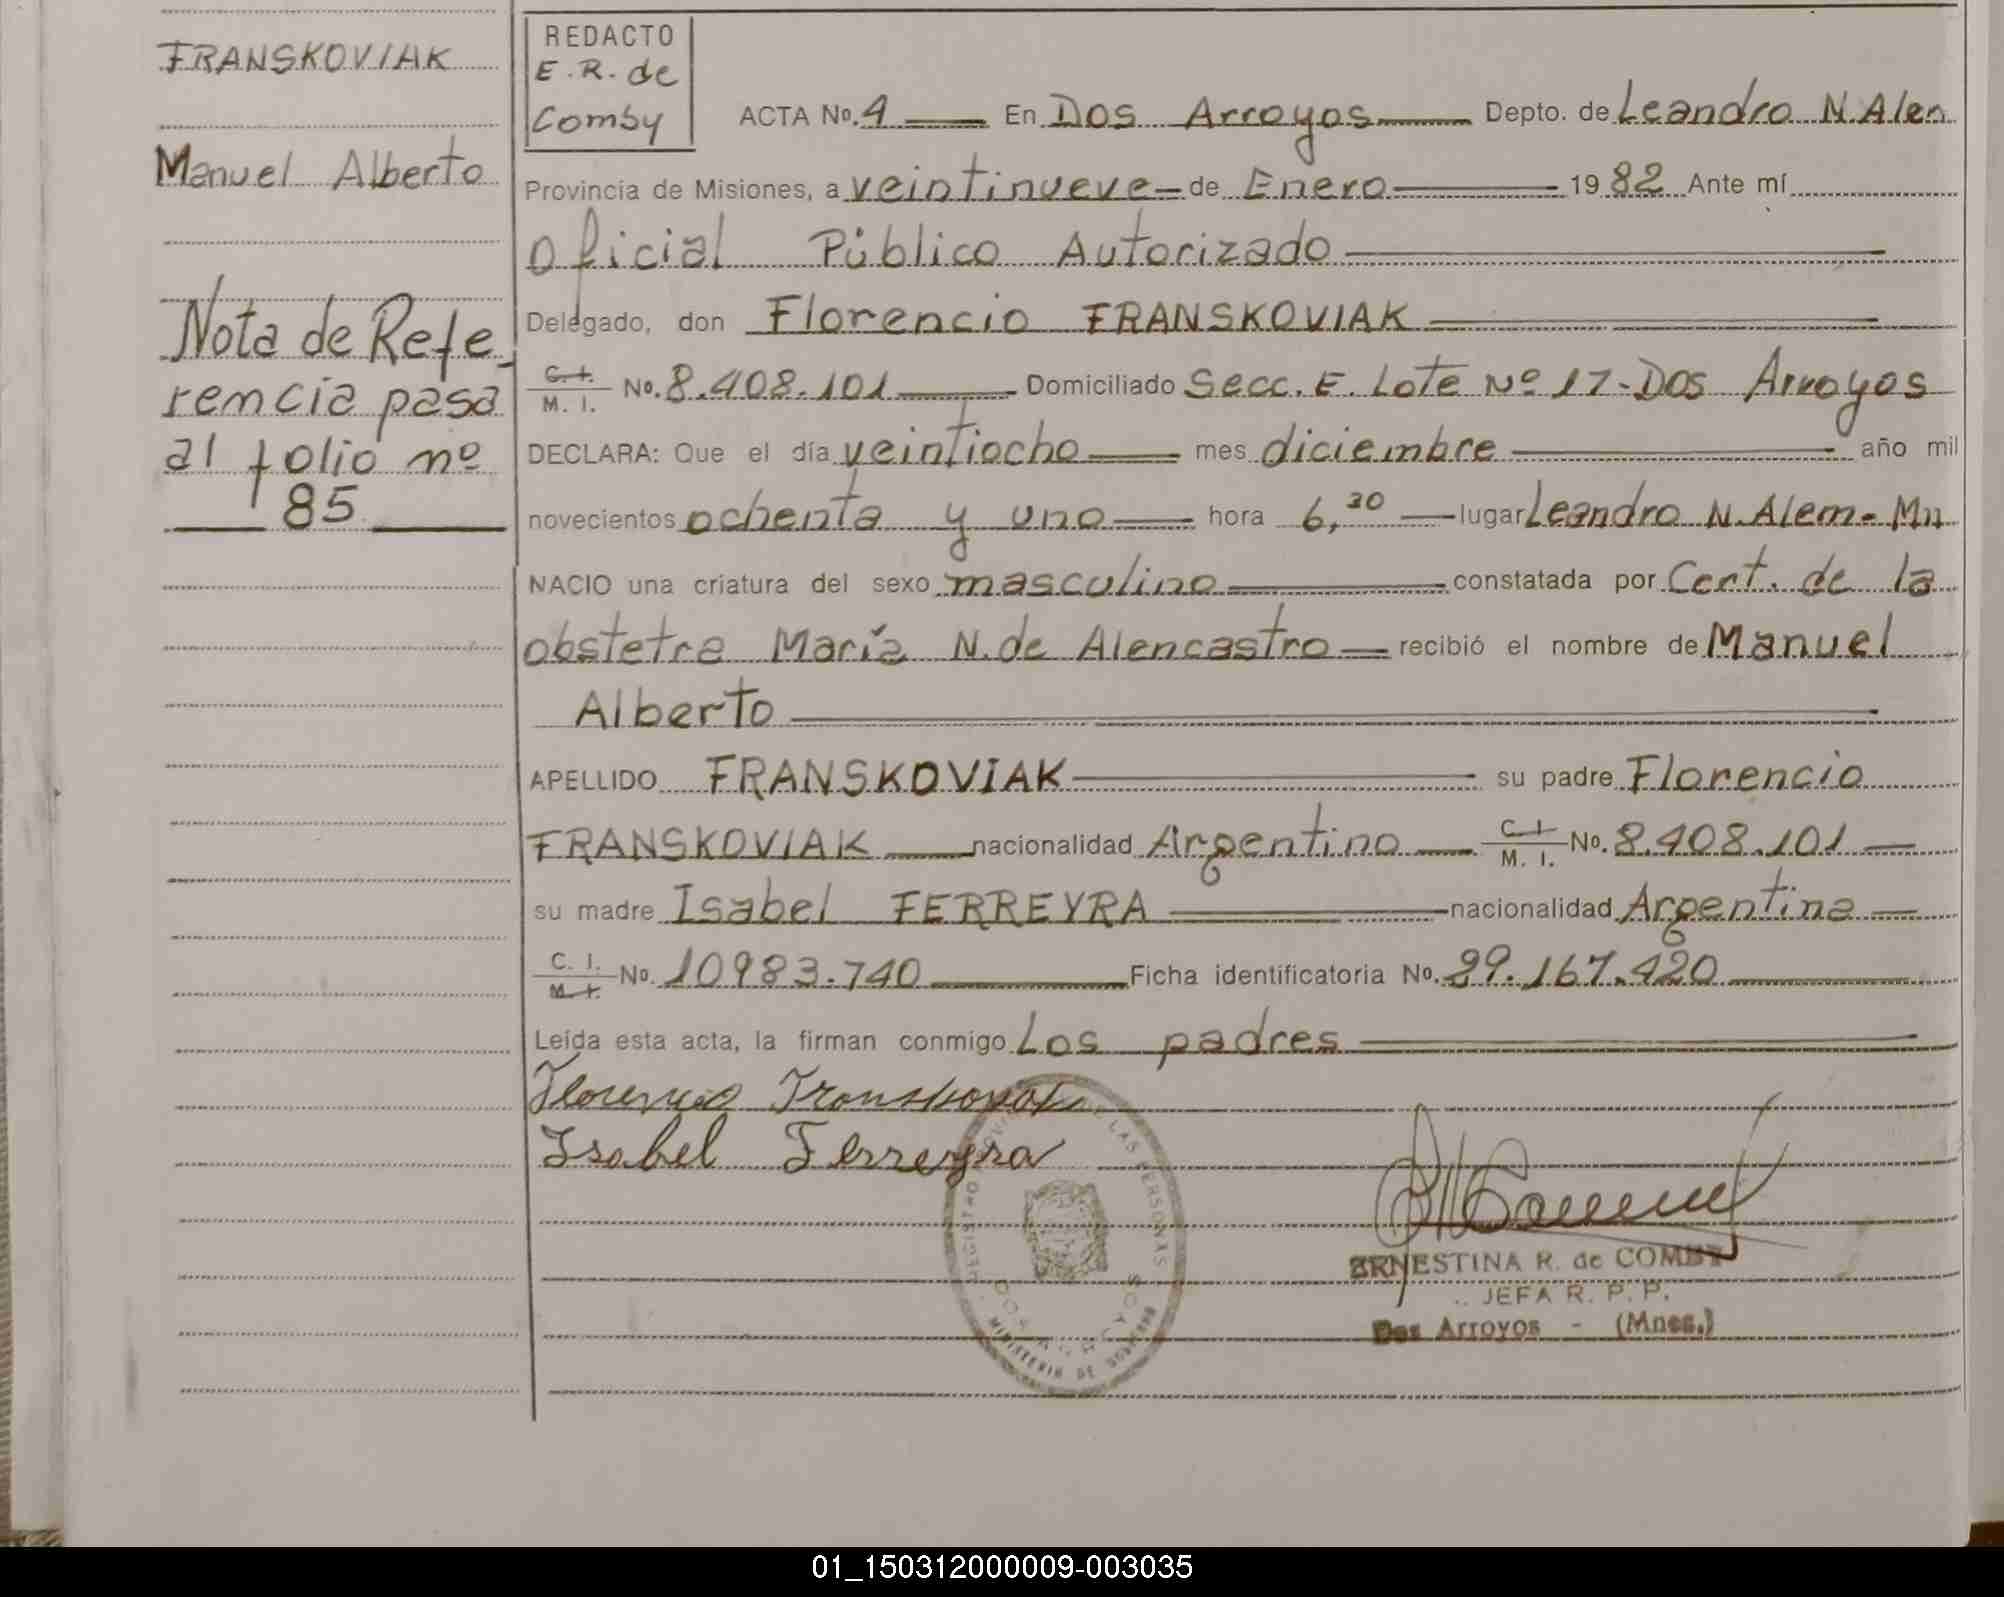 FRANSKOVIAK
Manuel Alberto
Nota de Refe-
rencia pasa
al folio nº
85
REDACTO
E.R. de
Comby
ACTA No. 4 En Dos Arroyos Depto. de Leandro N. Alen
Provincia de Misiones, a veintinueve de Enero 1982 Ante mí
Oficial Público Autorizado
Delegado, don Florencio FRANSKOVIAK
C. I. M. I. No. 8.408.101 Domiciliado Secc. E. Lote Nº 17-Dos Arroyos
DECLARA: Que el día veintiocho mes diciembre año mil
novecientos ochenta y uno hora 6,30 lugar Leandro N. Alem-Mn
NACIO una criatura del sexo masculino constatada por Cert. de la
obstetra María N. de Alencastro recibió el nombre de Manuel
Alberto
APELLIDO FRANSKOVIAK su padre Florencio
FRANSKOVIAK nacionalidad Argentino C. I. M. I. No. 8.408.101
su madre Isabel FERREYRA nacionalidad Argentina
C. I. M. I. No. 10983.740 Ficha identificatoria No. 29.167.420
Leída esta acta, la firman conmigo Los padres
Florencio Franskoviak
Isabel Ferreyra
ERNESTINA R. de COMBY
JEFA R. P. P.
Dos Arroyos - (Mnes.)
REGISTRO LAS PERSONAS
MINISTERIO DE GOBIERNO
01_150312000009-003035